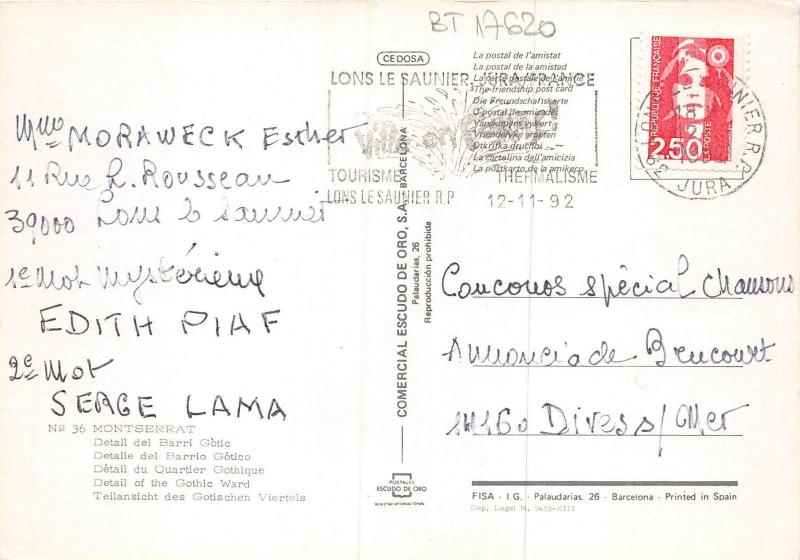 BT 17620
CEDOSA
La postal de l'amistat
La postal de la amistad
La carte postale de l'amitié
The friendship post card
Die Freundschaftskarte
O postal de amizade
Vriendelijke groeten
Otkritka druchbi
La cartolina dell'amicizia
La postkarto de la amikeco
LONS LE SAUNIER JURA FRANCE
TOURISME
THERMALISME
LONS LE SAUNIER R.P
12-11-92
REPUBLIQUE FRANÇAISE
2,50
LA POSTE
JURA
Mme MORAWECK Esther
11 Rue R. Rousseau
39000 Lons le Saunier
1e Mot Mystérieux
EDITH PIAF
2e Mot
SERGE LAMA
Nº 36 MONTSERRAT
Detall del Barri Gòtic
Detalle del Barrio Gótico
Détail du Quartier Gothique
Detail of the Gothic Ward
Teilansicht des Gotischen Viertels
COMERCIAL ESCUDO DE ORO, S.A. BARCELONA
Palaudarias, 26
Reproducción prohibida
POSTALES
ESCUDO DE ORO
REGISTRO INTERNACIONAL
Concours spécial chansons
Annoncia de Brucourt
14160 Dives s/Mer
FISA - I.G. - Palaudarias, 26 - Barcelona - Printed in Spain
Dep. Legal B. 9493-XIII